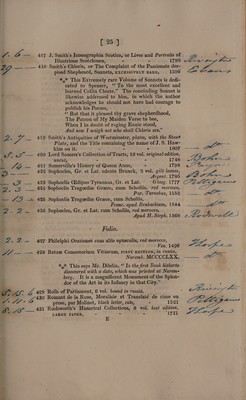 [ 25 ]
1. 6 — 417 J. Smith's Iconographia Scotica, or Lives and Portraits of
Illustrious Scotchmen, 1798
29 — 418 Smith's Chloris, or The Complaint of the Passionate des-
pised Shepheard, Sonnets, EXCESSIVELY RARE, 1596 Evans
*** This Extremely rare Volume of Sonnets is dedi-
cated to Spenser, "To the most excellent and
learned Collin Cloute." The concluding Sonnet is
likewise addressed to him, in which the author
acknowledges he should not have had courage to
publish his Poems,
" But that it pleased thy grave shepherdhood,
The Patron of My Maiden Verse to bee,
When I in doubt of raging Envie stood,
And now I waigh not who shall Chloris see."
2. 7 — 419 Smith's Antiquities of Westminster, plates, with the Stone
Plate, and the Title containing the name of J. S. Haw-
kins on it. 1807
5. 5 — 420 Lord Somers's Collection of Tracts, 13 vol. original edition,
uncut, 1748 Bohn
— 14 — 421 Somerville's History of Queen Anne, 1798
3 — 422 Sophocles, Gr. et Lat. edente Brunck, 2 vol. gilt leaves,
Argent. 1786 Bohn
2. 3 — 423 Sophoclis Œdipus Tyrannus, Gr. et Lat. Glasg. 1777
— 424 Sophoclis Tragœdiæ Græce, cum Scholiis, red morocco,
Par. Turnebus, 1553
— 13 — 425 Sophoclis Tragœdiæ Græce, cum Scholiis,
Franc. apud Brubachium, 1544
2. 2 — 426 Sophocles, Gr. et Lat. cum Scholiis, red morocco,
Apud H. Steph. 1568
Folio.
2. 2 — 427 Philelphi Orationes cum aliis opusculis, red morocco,
Ven. 1492 Thorpe
11 — 428 Ratum Comoediarum Vitiarum
Noremb. MCCCCLXX.
*** This says Mr. Dibdin, " Is the first Book hitherto
discovered with a date, which was printed at Norem-
berg. It is a magnificent Monument of the Splen-
dor of the Art in its Infancy in that City."
5. 15. 6 429 Rolls of Parliament, 6 vol. bound in russia.
1. 11. 6 430 Romant de la Rose, Moralisie et Translaté de rime en
prose, par Molinet, black letter, rare, 1521
5. 18 — 431 Rushworth's Historical Collections, 8 vol. best edition,
LARGE PAPER, 1721 Thorpe
E